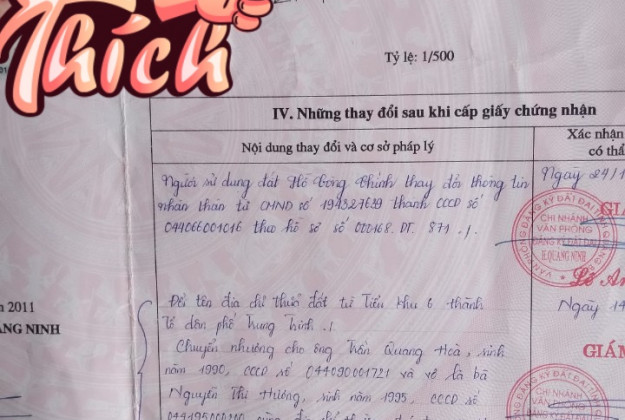 Thích
Tỷ lệ: 1/500
IV. Những thay đổi sau khi cấp giấy chứng nhận
Nội dung thay đổi và cơ sở pháp lý
Xác nhận
có thẩ
Người sử dụng đất Hồ Công Chính thay đổi thông tin
nhân thân từ CMND số 194327639 thành CCCD số
044066001016 theo hồ sơ số 000168. DT. 871 ./.
Ngày 24/1
GIÁ
VĂN PHÒNG ĐĂNG KÝ ĐẤT ĐAI TỈNH QUẢNG
CHI NHÁNH
VĂN PHÒNG
ĐĂNG KÝ ĐẤT ĐAI
H. QUẢNG NINH
Lê An
n 2011
ẢNG NINH
Đổi tên địa chỉ thửa đất từ Tiểu khu 6 thành
Tổ dân phố Trung Trinh ./.
Chuyển nhượng cho ông Trần Quang Hoà, sinh
năm 1990, CCCD số 044090001721 và vợ là bà
Nguyễn Thị Hương, sinh năm 1995, CCCD số
Ngày 14
GIÁM
CHI NHÁNH
VĂN PHÒNG